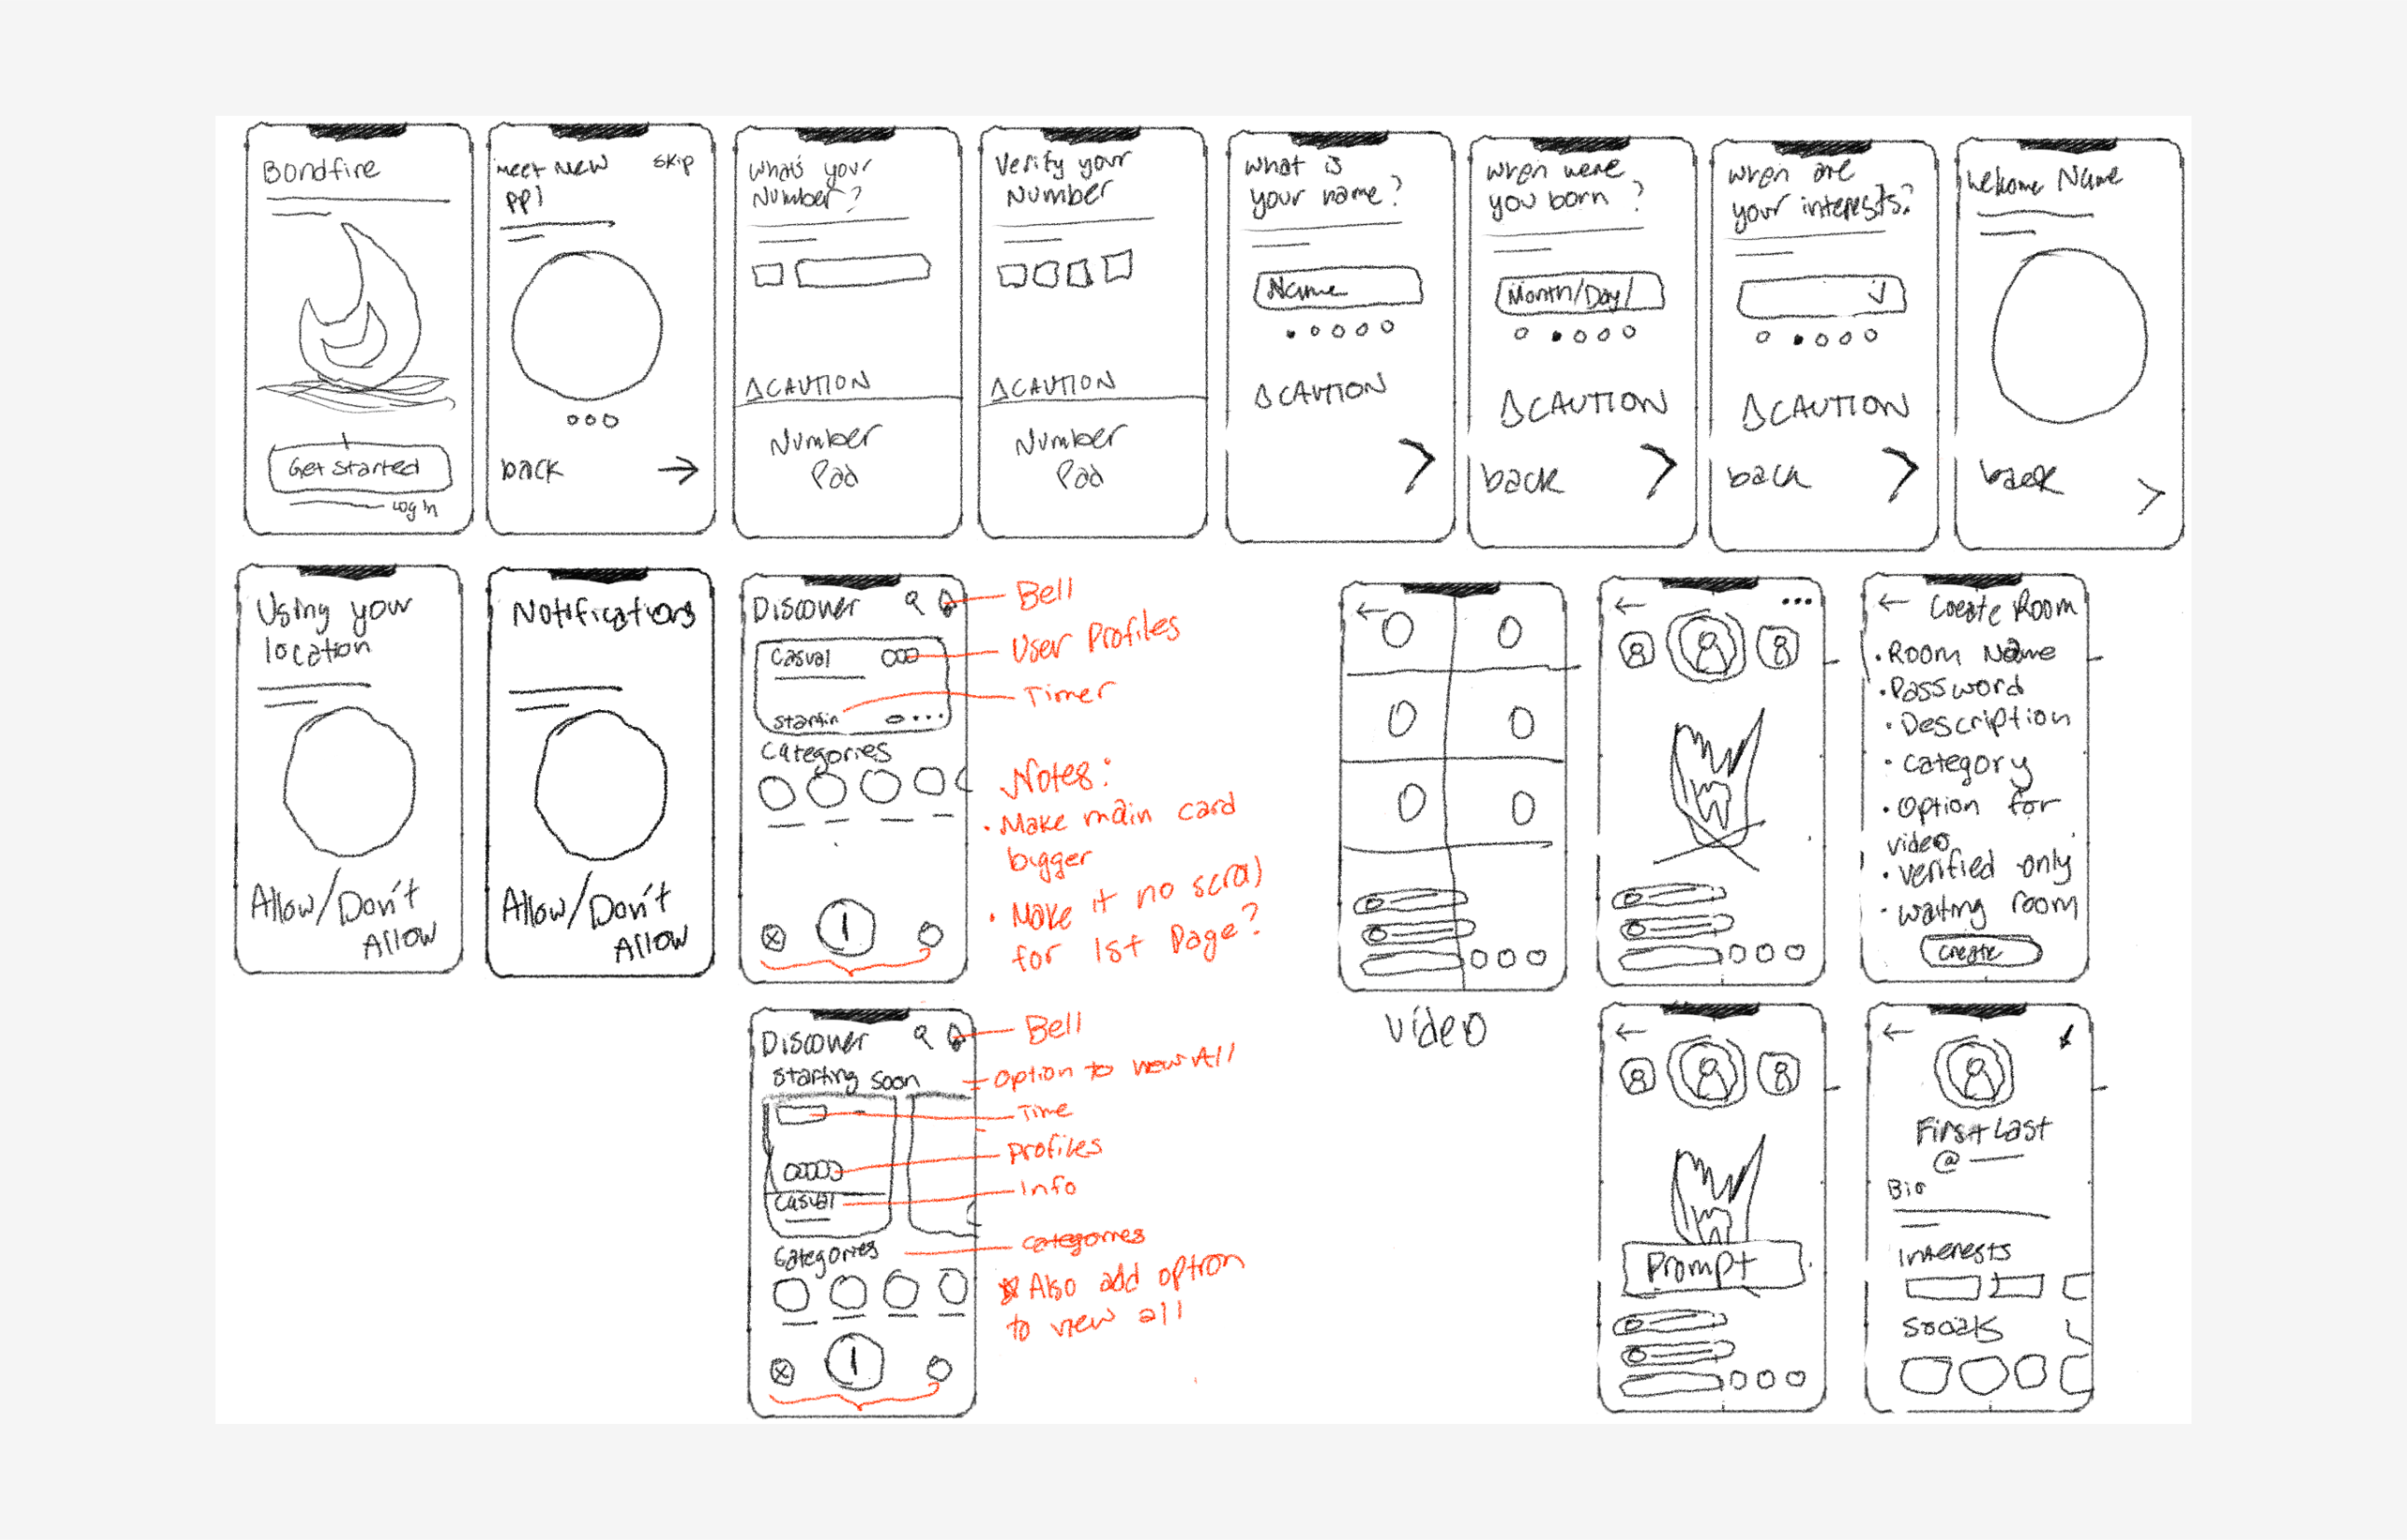 Bondfire
Get Started
Log in
Meet New
PPl
Skip
back
What's your
Number?
CAUTION
Number
Pad
Verify your
Number
CAUTION
Number
Pad
what is
your name?
Name
CAUTION
when were
you born ?
Month/Day/
CAUTION
back
when are
your interests?
CAUTION
back
Welcome Name
back
Using your
location
Allow/Don't
Allow
Notifications
Allow/Don't
Allow
Discover
Casual
Categories
Bell
User Profiles
Timer
Notes:
• Make main card
bigger
• Make it no scral
for 1st Page?
video
Create Room
• Room Name
• Password
• Description
• Category
• Option for
video
• Verified only
• waiting room
Create
Discover
Starting soon
Casual
Categories
Bell
Option to view All
Time
Profiles
Info
categories
Also add option
to view all
Prompt
First Last
@
Bio
Interests